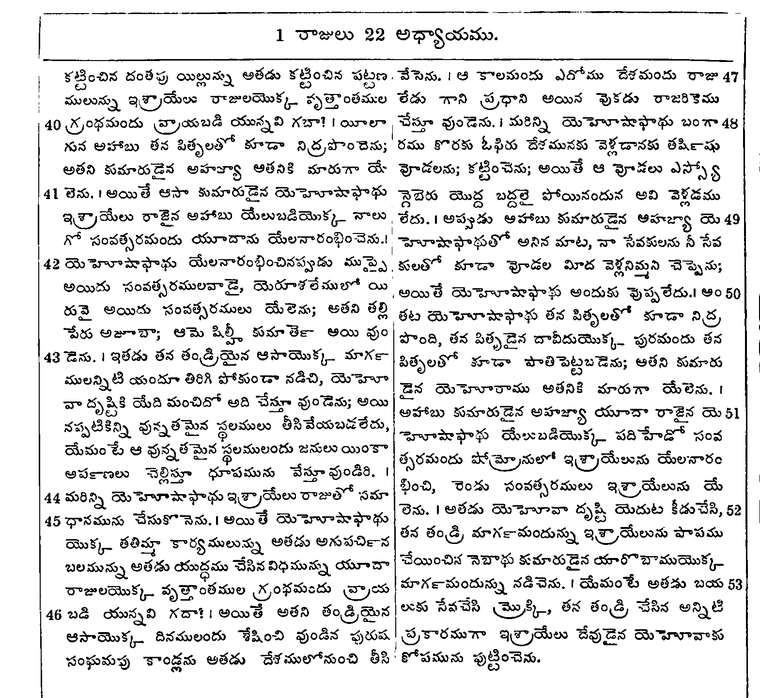 1 రాజులు 22 అధ్యాయము.
కట్టించిన దంతపు యిల్లున్ను అతడు కట్టించిన పట్టణ
ములున్ను ఇశ్రాయేలు రాజులయొక్క వృత్తాంతముల
40 గ్రంథమందు వ్రాయబడి యున్నవి గదా! । యీలా
గున అహాబు తన పితృలతో కూడా నిద్రపొందెను;
అతని కుమారుడైన అహజ్యా అతనికి మారుగా యే
41 లెను. । అయితే ఆసా కుమారుడైన యెహోషాఫాథు
ఇశ్రాయేలు రాజైన అహాబు యేలుబడియొక్క నాలు
గో సంవత్సరమందు యూదాను యేలనారంభించెను.।
42 యెహోషాఫాథు యేలనారంభించినప్పుడు ముప్పై
అయిదు సంవత్సరములవాడై, యెరూశలేములో యి
రువై అయిదు సంవత్సరములు యేలెను; అతని తల్లి
పేరు అజూబా; ఆమె షిల్హీ కుమార్తె అయి వుం
43 డెను. । ఇతడు తన తండ్రియైన ఆసాయొక్క మార్గ
ములన్నిటి యందూ తిరిగి పోకుండా నడిచి, యెహో
వా దృష్టికి యేది మంచిదో అది చేస్తూ వుండెను; అయి
నప్పటికిన్ని వున్నతమైన స్థలములు తీసివేయబడలేదు,
యేమంటే ఆ వున్నతమైన స్థలములందు జనులు యింకా
అర్పణలు చెల్లిస్తూ ధూపమును వేస్తూవుండిరి. ।
44 మరిన్ని యెహోషాఫాథు ఇశ్రాయేలు రాజుతో సమా
45 ధానమును చేసుకొనెను. । అయితే యెహోషాఫాథు
యొక్క తతిమ్మా కార్యములున్ను అతడు అగుపర్చిన
బలమున్ను అతడు యుద్ధము చేసిన విధమున్ను యూదా
రాజులయొక్క వృత్తాంతముల గ్రంథమందు వ్రాయ
46 బడి యున్నవి గదా! । అయితే అతని తండ్రియైన
ఆసాయొక్క దినములందు శేషించి వుండిన పురుష
సంఘమపు కాండ్లను అతడు దేశములోనుంచి తీసి
వేసెను. । ఆ కాలమందు ఎదోము దేశమందు రాజు 47
లేడు గాని ప్రధాని అయిన వొకడు రాజరికము
చేస్తూ వుండెను. । మరిన్ని యెహోషాఫాథు బంగా 48
రము కొరకు ఓఫిరు దేశమునకు వెళ్లడానకు తర్షీషు
వోడలను; కట్టించెను; అయితే ఆ వోడలు ఎస్స్యో
న్గెబెరు యొద్ద బద్దలై పోయినందున అవి వెళ్లడము
లేదు. । అప్పుడు అహాబు కుమారుడైన అహజ్యా యె 49
హోషాఫాథుతో అనిన మాట, నా సేవకులను నీ సేవ
కులతో కూడా వోడల మీద వెళ్లనిమ్మని చెప్పెను;
అయితే యెహోషాఫాథు అందుకు వొప్పలేదు. । అం 50
తట యెహోషాఫాథు తన పితృలతో కూడా నిద్ర
పొంది, తన పితృడైన దావీదుయొక్క పురమందు తన
పితృలతో కూడా పాతిపెట్టబడెను; అతని కుమారు
డైన యెహోరాము అతనికి మారుగా యేలెను. ।
అహాబు కుమారుడైన అహజ్యా యూదా రాజైన యె 51
హోషాఫాథు యేలుబడియొక్క పదిహేడో సంవ
త్సరమందు షోమ్రోనులో ఇశ్రాయేలును యేలనారం
భించి, రెండు సంవత్సరములు ఇశ్రాయేలును యే
లెను. । అతడు యెహోవా దృష్టి యెదుట కీడుచేసి, 52
తన తండ్రి మార్గమందున్ను ఇశ్రాయేలును పాపము
చేయించిన నెబాథు కుమారుడైన యారోబాముయొక్క
మార్గమందున్ను నడిచెను. । యేమంటే అతడు బయ 53
లుకు సేవచేసి మ్రొక్కి, తన తండ్రి చేసిన అన్నిటి
ప్రకారముగా ఇశ్రాయేలు దేవుడైన యెహోవాకు
కోపమును పుట్టించెను.